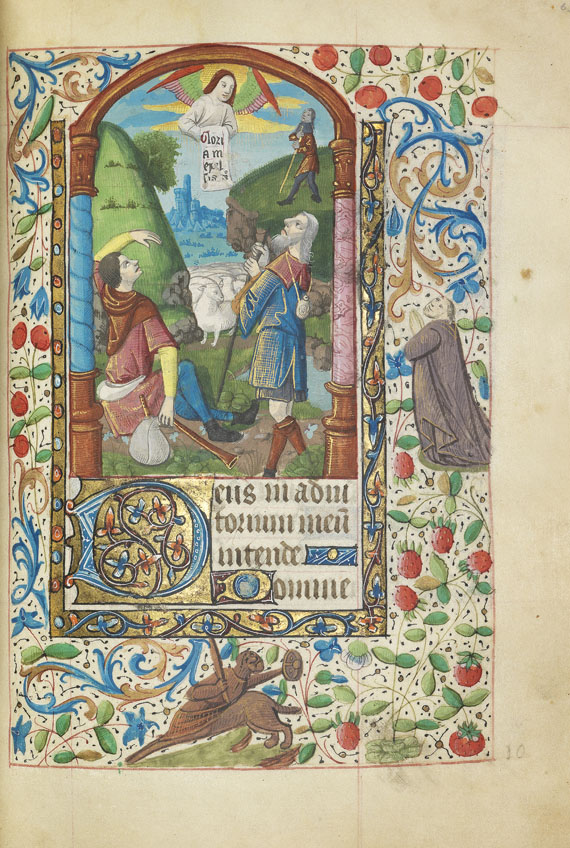 Glori
a in
excel
sis
Deus in adiu
torium meu̅
intende
Domine
10